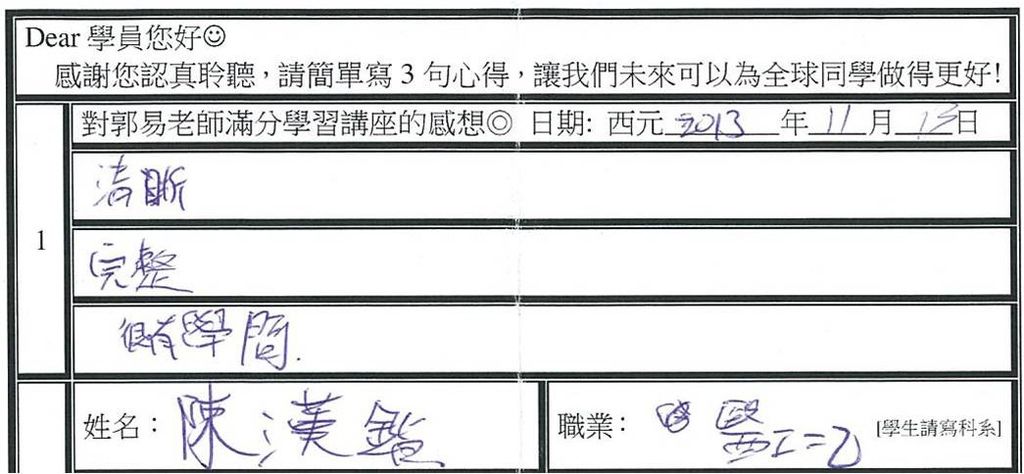 Dear 學員您好☺
感謝您認真聆聽，請簡單寫 3 句心得，讓我們未來可以為全球同學做得更好!
1
對郭易老師滿分學習講座的感想◎ 日期: 西元 2013 年 11 月 13 日
清晰
完整
很有學問.
姓名： 陳漢鐺 職業： 醫工二乙 [學生請寫科系]